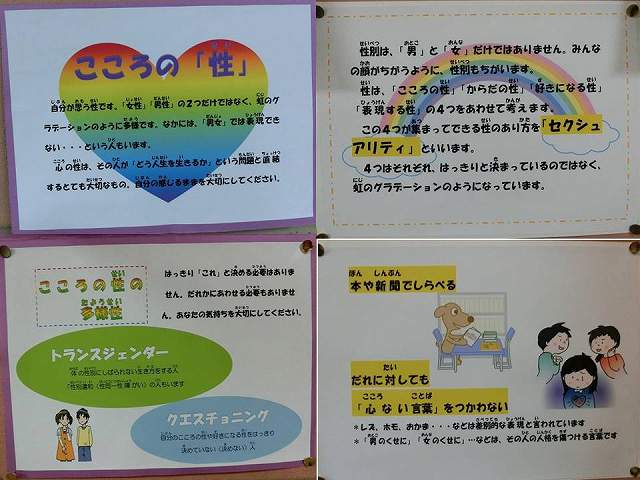 こころの「性」
自分が思う性です。「女性」「男性」の２つだけではなく、虹のグ
ラデーションのように多様です。なかには、「男女」では表現でき
ない・・・という人もいます。
心の性は、その人が「どう人生を生きるか」という問題と直結
するとても大切なもの。自分の感じるままを大切にしてください。
性別は、「男」と「女」だけではありません。みんな
の顔がちがうように、性別もちがいます。
性は、「こころの性」「からだの性」「好きになる性」
「表現する性」の４つをあわせて考えます。
この４つが集まってできる性のあり方を「セクシュ
アリティ」といいます。
４つはそれぞれ、はっきりと決まっているのではなく、
虹のグラデーションのようになっています。
こころの性の
多様性
はっきり「これ」と決める必要はありま
せん。だれかにあわせる必要もありませ
ん。あなたの気持ちを大切にしてください。
トランスジェンダー
体の性別にしばられない生き方をする人
「性別違和（性同一性障がい）の人もいます
クエスチョニング
自分のこころの性や好きになる性をはっきり
決めていない（決めない）人
本や新聞でしらべる
だれに対しても
「心ない言葉」をつかわない
＊レズ、ホモ、おかま・・・などは差別的な表現と言われています
＊「男のくせに」「女のくせに」…などは、その人の人格を傷つける言葉です